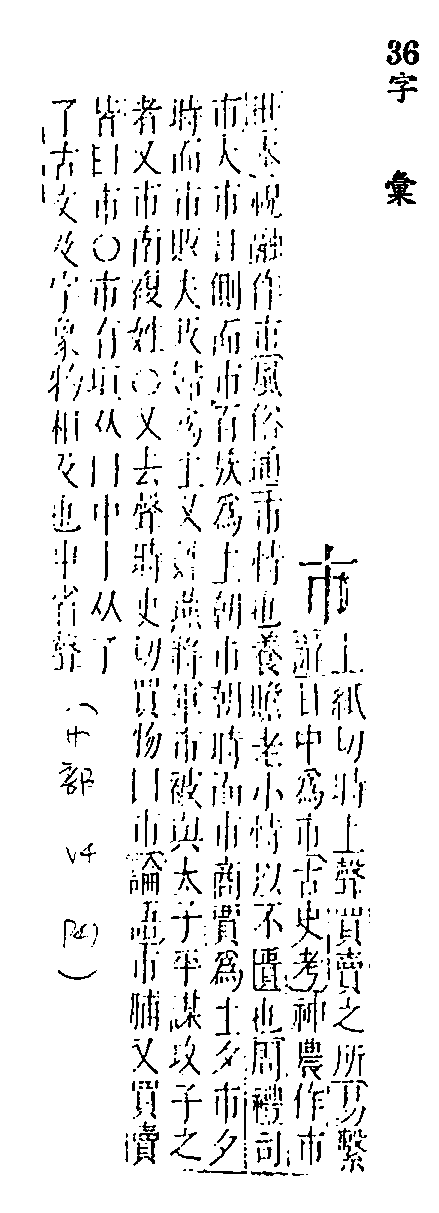 36字 彙
市
上紙切時上聲買賣之所易繫
辭日中爲市古史考神農作市
世本祝融作市風俗通市恃也養贍老小恃以不匱也周禮司
市大市日側而市百族爲主朝市朝時而市商賈爲主夕市夕
時而市販夫販婦爲主又姓燕將軍市被與太子平謀攻子之
者又市南複姓○又去聲時吏切買物曰市論語市脯又買賣
皆曰市○市有垣从冂中丨从了
了古文及字象物相及也中省聲 (巾部 v4 )